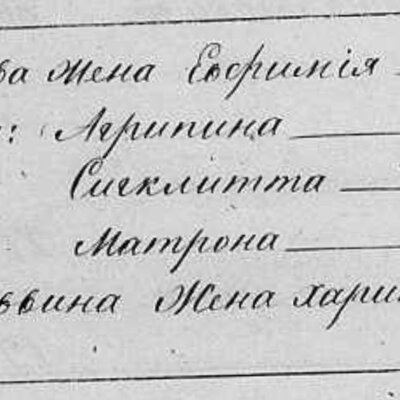 ва жена Евфимія
: Агрипина
Сигклитта
Матрона
ввина Жена хари